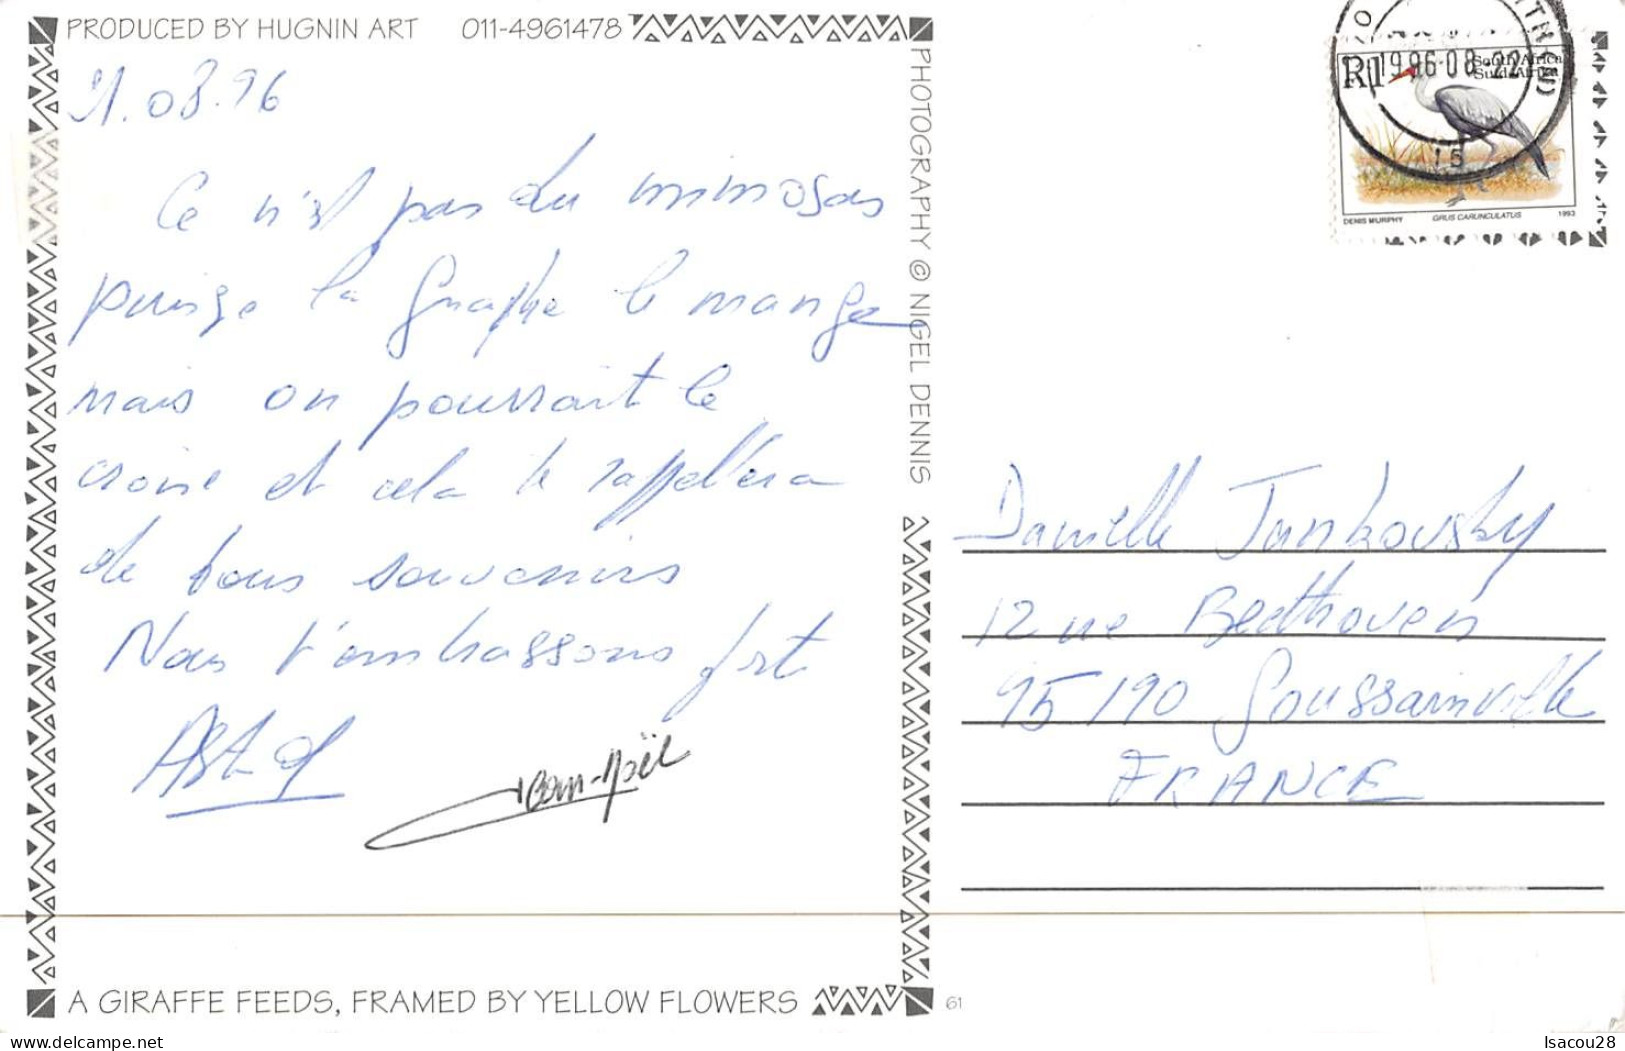 PRODUCED BY HUGNIN ART 011-4961478
21.08.96
Ce n'est pas du mimosas
puisque la Giraphe le mange
mais on pourrait le
croire et cela te rappellera
de bons souvenirs
Nous t'embrassons fort
Jean-Noël
A GIRAFFE FEEDS, FRAMED BY YELLOW FLOWERS
PHOTOGRAPHY © NIGEL DENNIS
61
R1
South Africa
Suid-Afrika
1996-08-22
15
DENIS MURPHY GRUS CARUNCULATUS 1993
Danielle Jankovsky
12 rue Beethoven
95190 Goussainville
FRANCE
Isacou28